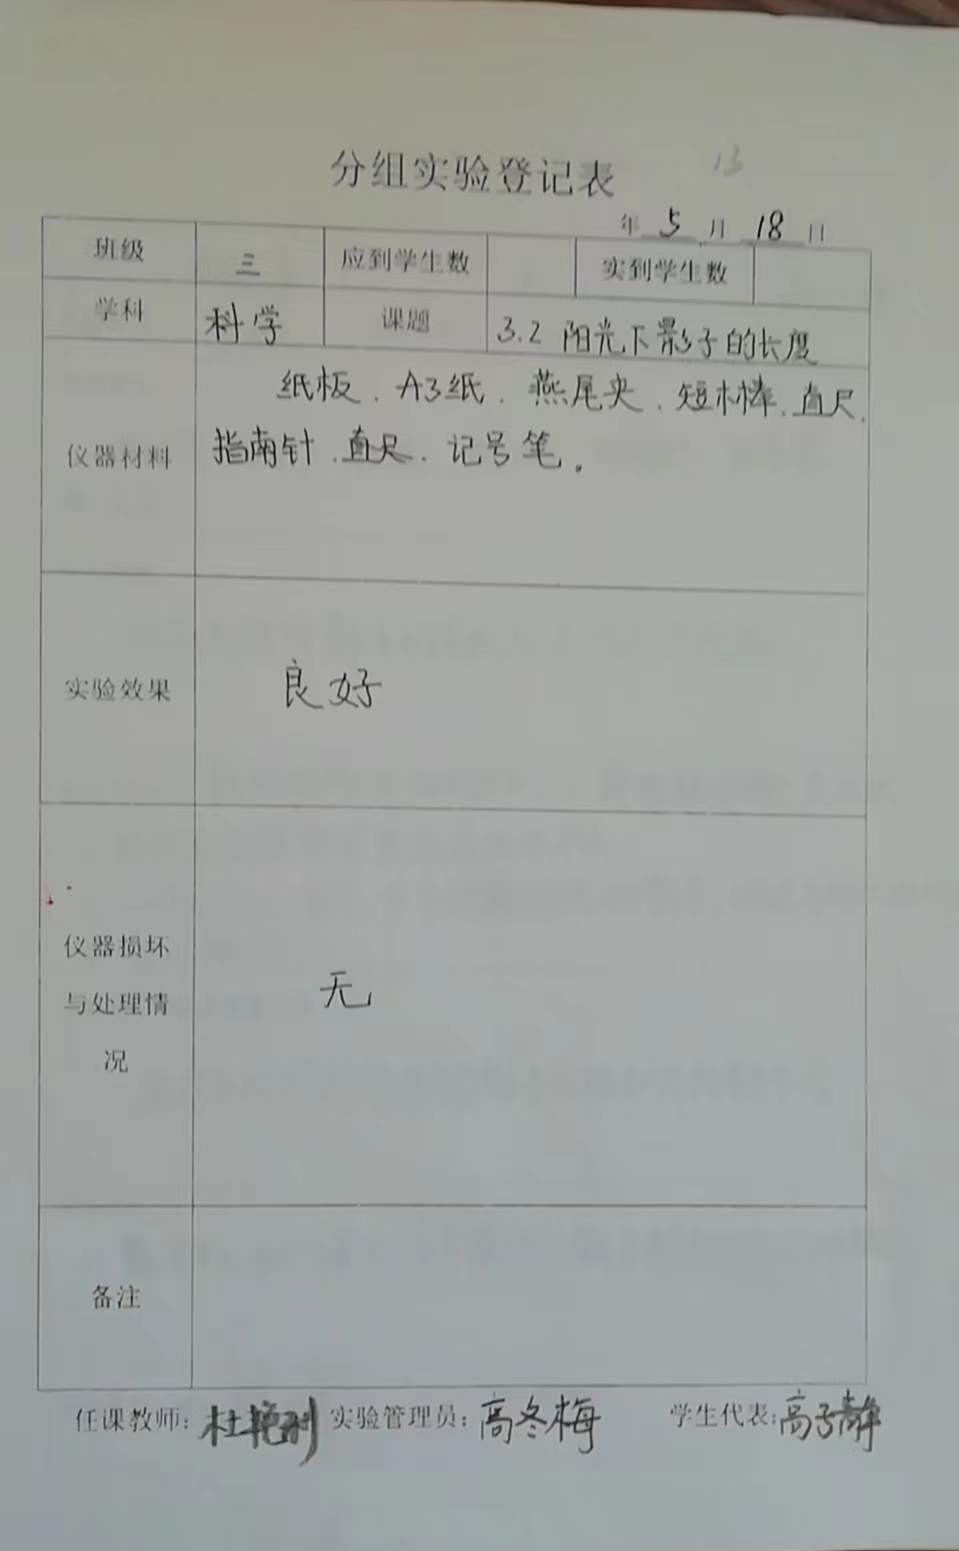 分组实验登记表 13
年 5 月 18 日
班级 三 应到学生数 实到学生数
学科 科学 课题 3.2 阳光下影子的长度
仪器材料
纸板、A3纸、燕尾夹、短木棒、直尺、
指南针、直尺、记号笔。
实验效果 良好
仪器损坏
与处理情
况
无
备注
任课教师: 杜艳 实验管理员: 高冬梅 学生代表: 高子静